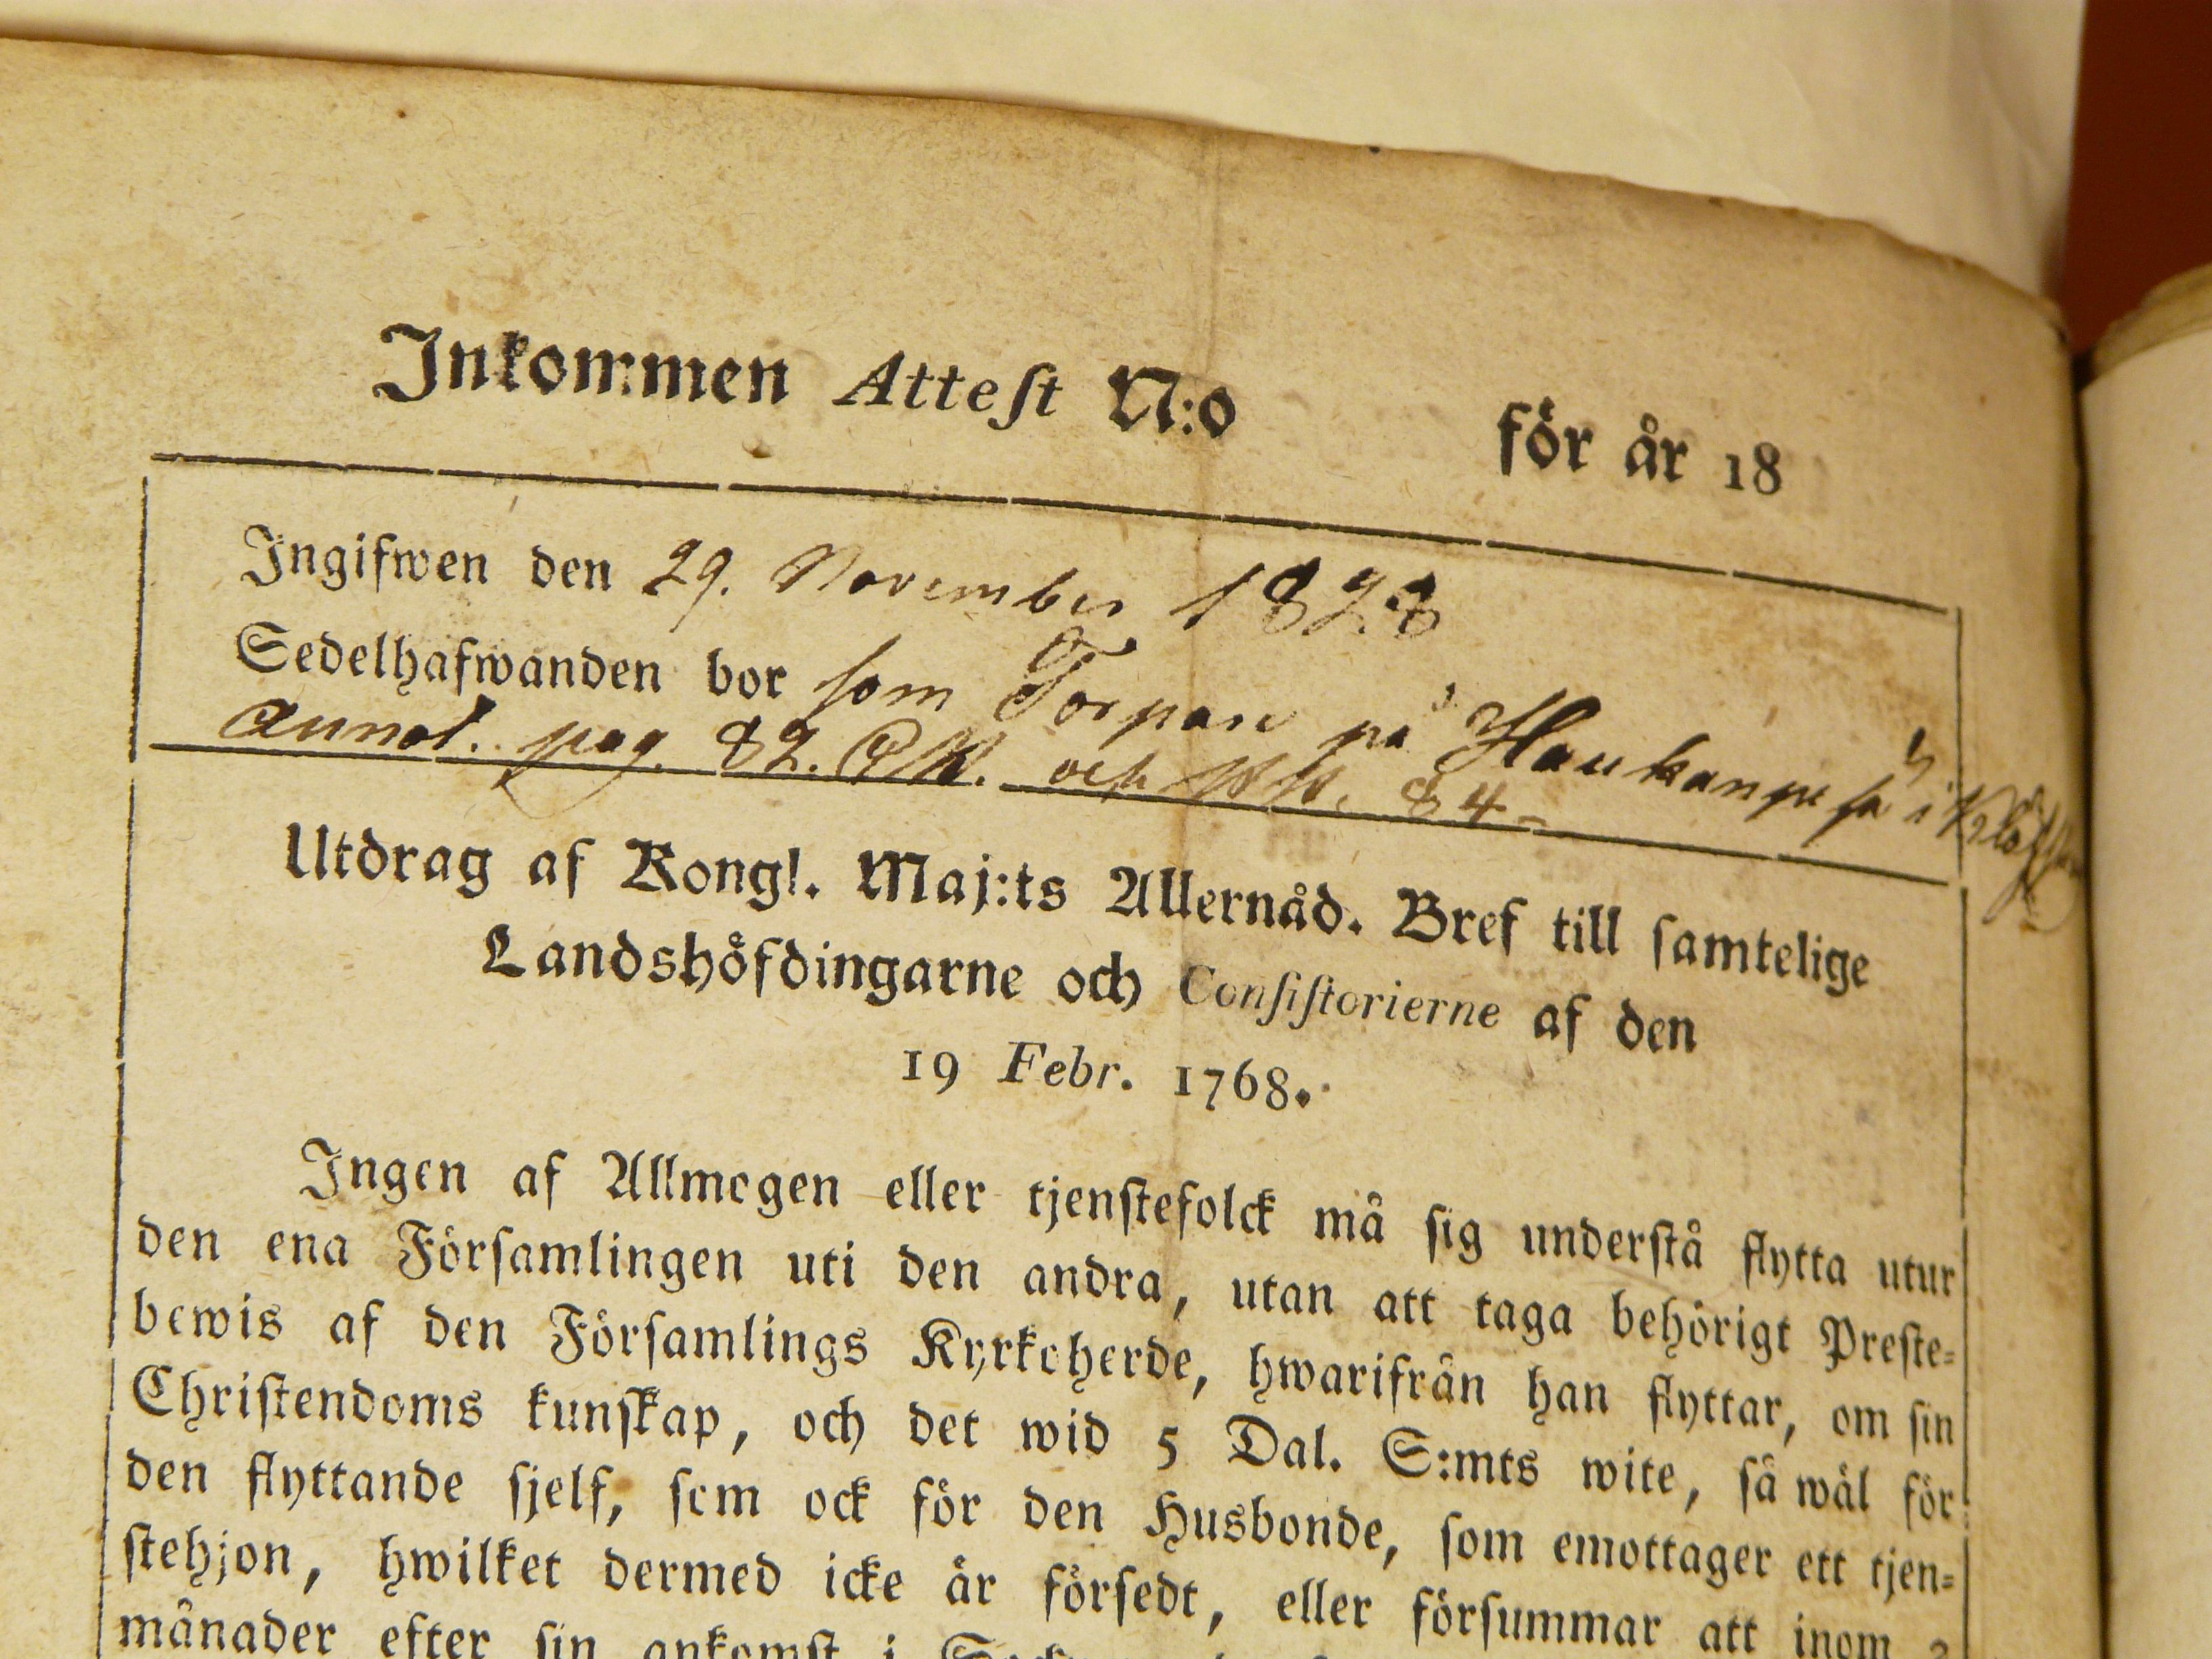 Inkommen Attest N:o för år 18
Ingifwen den 29. November 1828
Sedelhafwanden bor som Torpare på Haukangesa i
annot. pag. 82. och 84
Utdrag af Kongl. Maj:ts Allernåd. Bref till samtelige
Landshöfdingarne och Consistorierne af den
19 Febr. 1768.
Ingen af Allmogen eller tjenstefolck må sig understå flytta utur
den ena Församlingen uti den andra, utan att taga behörigt Preste-
bewis af den Församlings Kyrkoherde, hwarifrån han flyttar, om sin
Christendoms kunskap, och det wid 5 Dal. S:mts wite, så wäl för
den flyttande sjelf, som ock för den Husbonde, som emottager ett tjen-
stehjon, hwilket dermed icke är försedt, eller försummar att inom
månader efter sin ankomst i